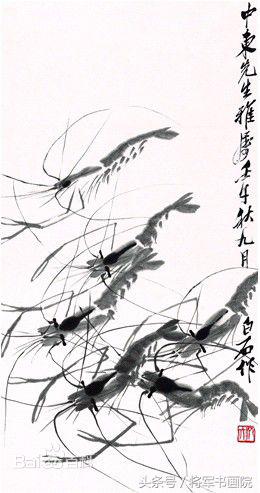 中東先生雅屬壬午秋九月
白石作
Baidu百科
头条号 / 将军书画院